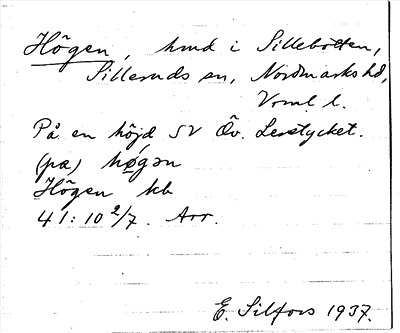 Högen, hmd i Sillebotten,
Silleruds sn, Nordmarks hd,
Vrml. l.
På en höjd SV Öv. Lerstycket.
(pa) høgən
Högen kb
41:10 2/7. Arr.
E. Silfors 1937.